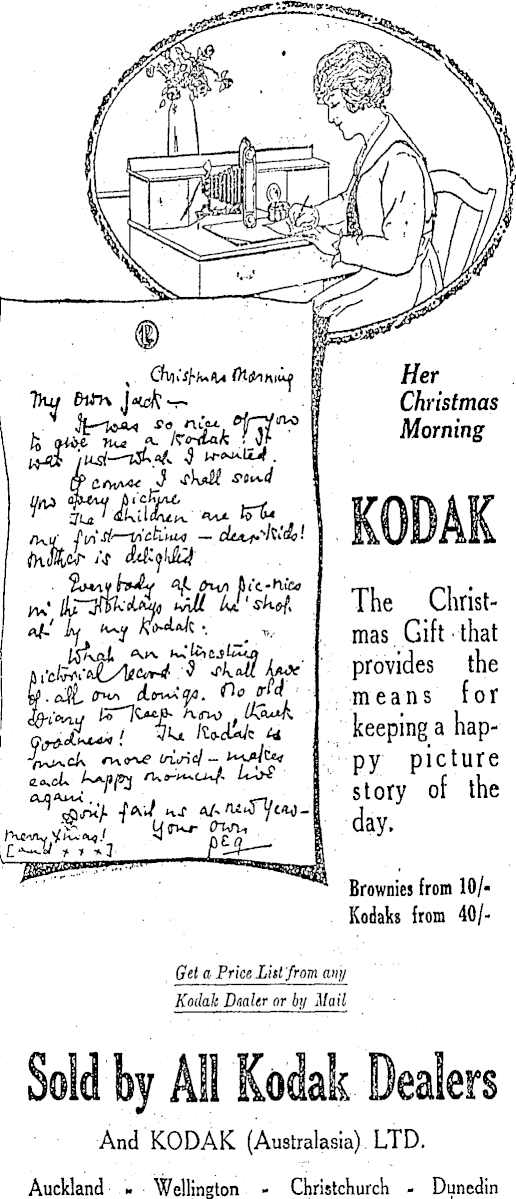 Christmas Morning
My Own Jack —
It was so nice of you
to give me a Kodak! It
was just what I wanted.
Of course I shall send
you every picture
The Children are to be
my first victims — dear kids!
Mother is delighted
Everybody at our pic-nics
in the Holidays will be 'shot
at' by my Kodak.
What an interesting
pictorial record I shall have
of all our doings. No old
Diary to keep now, thank
goodness! The Kodak is
much more vivid — makes
each happy moment live
again.
Don't fail us at New Year —
Your Own
Peg
Merry Xmas!
[and x x x]
Her
Christmas
Morning
KODAK
The Christ-
mas Gift that
provides the
means for
keeping a hap-
py picture
story of the
day.
Brownies from 10/-
Kodaks from 40/-
Get a Price List from any
Kodak Dealer or by Mail
Sold by All Kodak Dealers
And KODAK (Australasia) LTD.
Auckland - Wellington - Christchurch - Dunedin